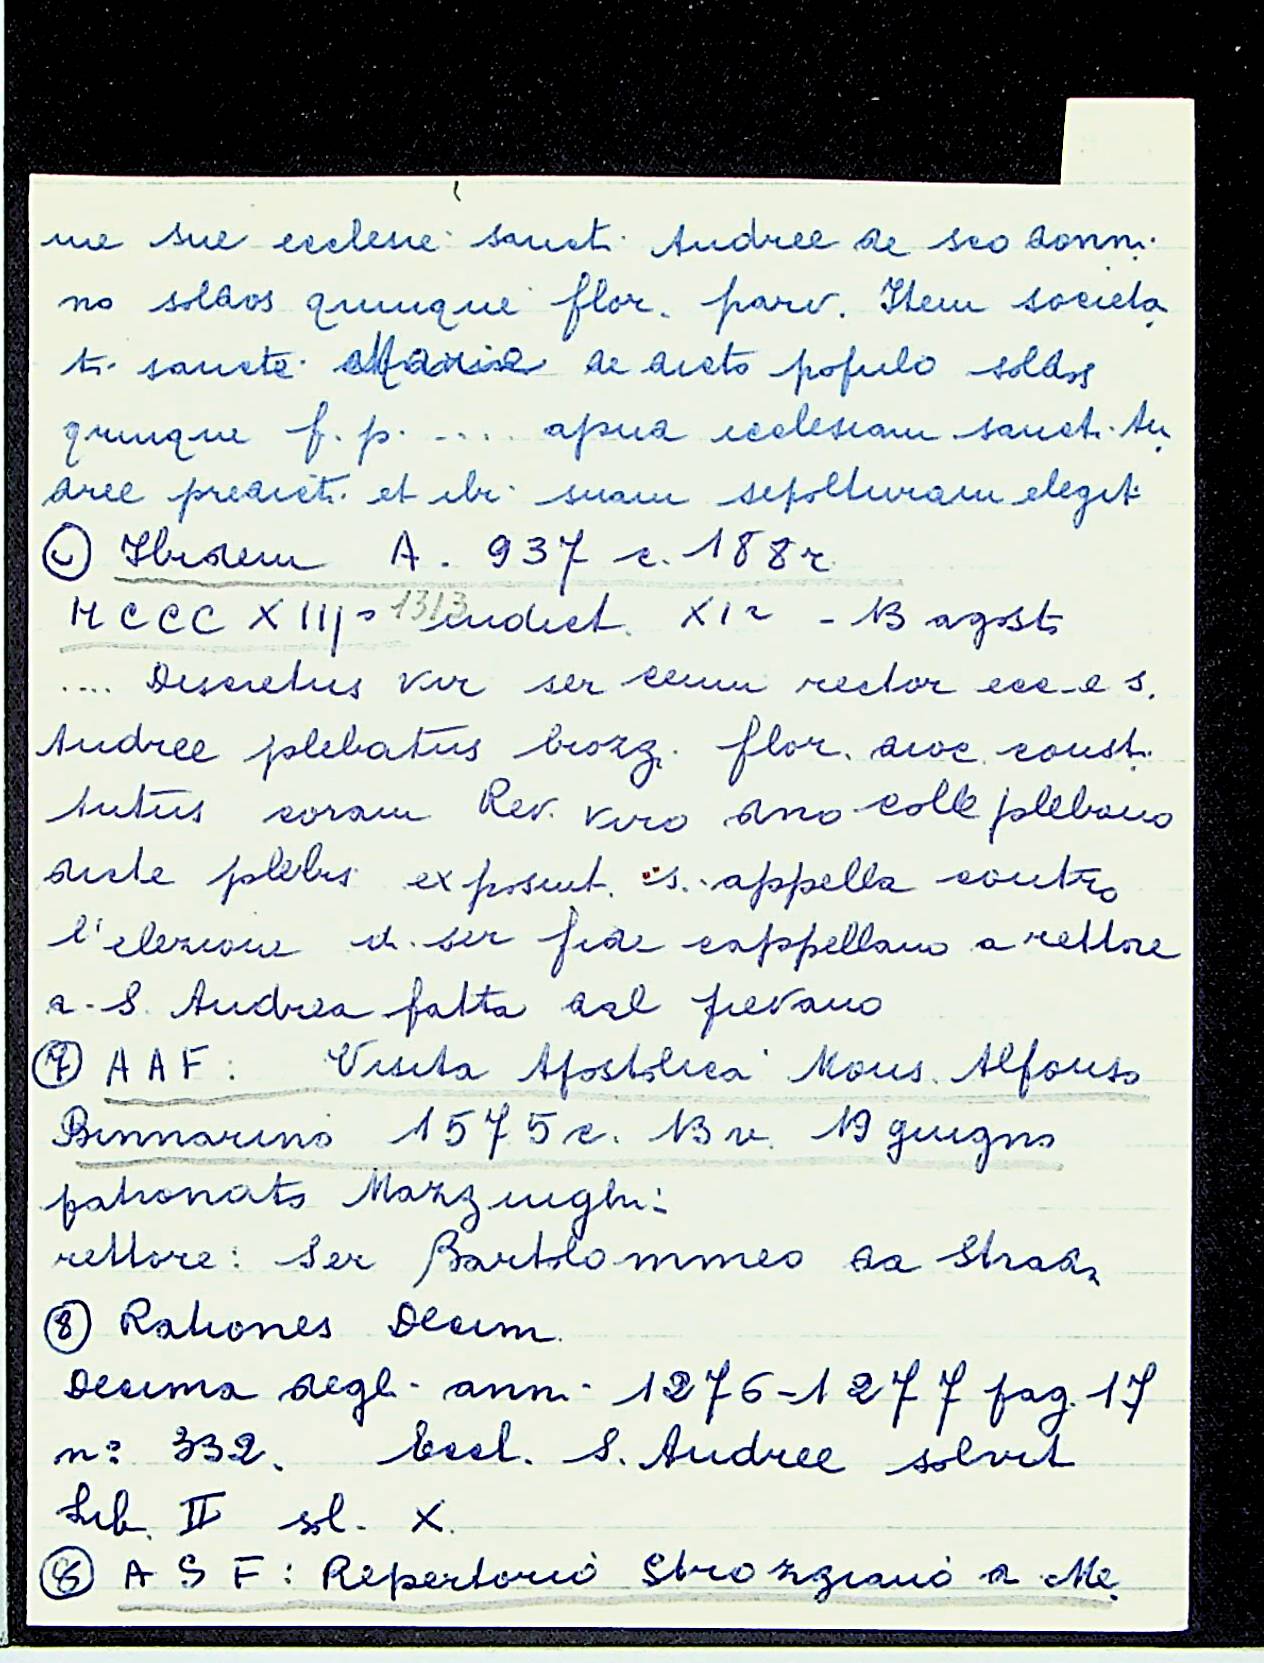 me sue ecclesie sancti Andree de sco donni
no soldos quinque flor. parv. Item societa
ti sancte Marie de dicto populo soldos
quinque f. p. .... apud ecclesiam sancti An
dree predicti et ibi suam sepolturam elegit
Ibidem A. 937 c. 188r
MCCCXIIJ° 1313 indict. XIa - 13 agosto
.... Discretus vir ser cenni rector ecc-e s.
Andree plebatus brozz. flor. dioc. consti
tutus coram Rev. viro dno colle plebano
dicte plebis exposuit. si appella contro
l'elezione di ser fide cappellano a rettore
a S. Andrea fatta dal pievano
(7) AAF: Visita Apostolica Mons. Alfonso
Binnarino 1575 c. 13 v. 19 giugno
patronato Mazzinghi:
rettore: Ser Bartolommeo da Strada
(8) Rationes Decim.
Decima degli anni 1276-1277 pag. 17
n° 332. Eccl. S. Andree solvit
Lib. II sol. X.
ASF: Repertorio Strozziano a Me